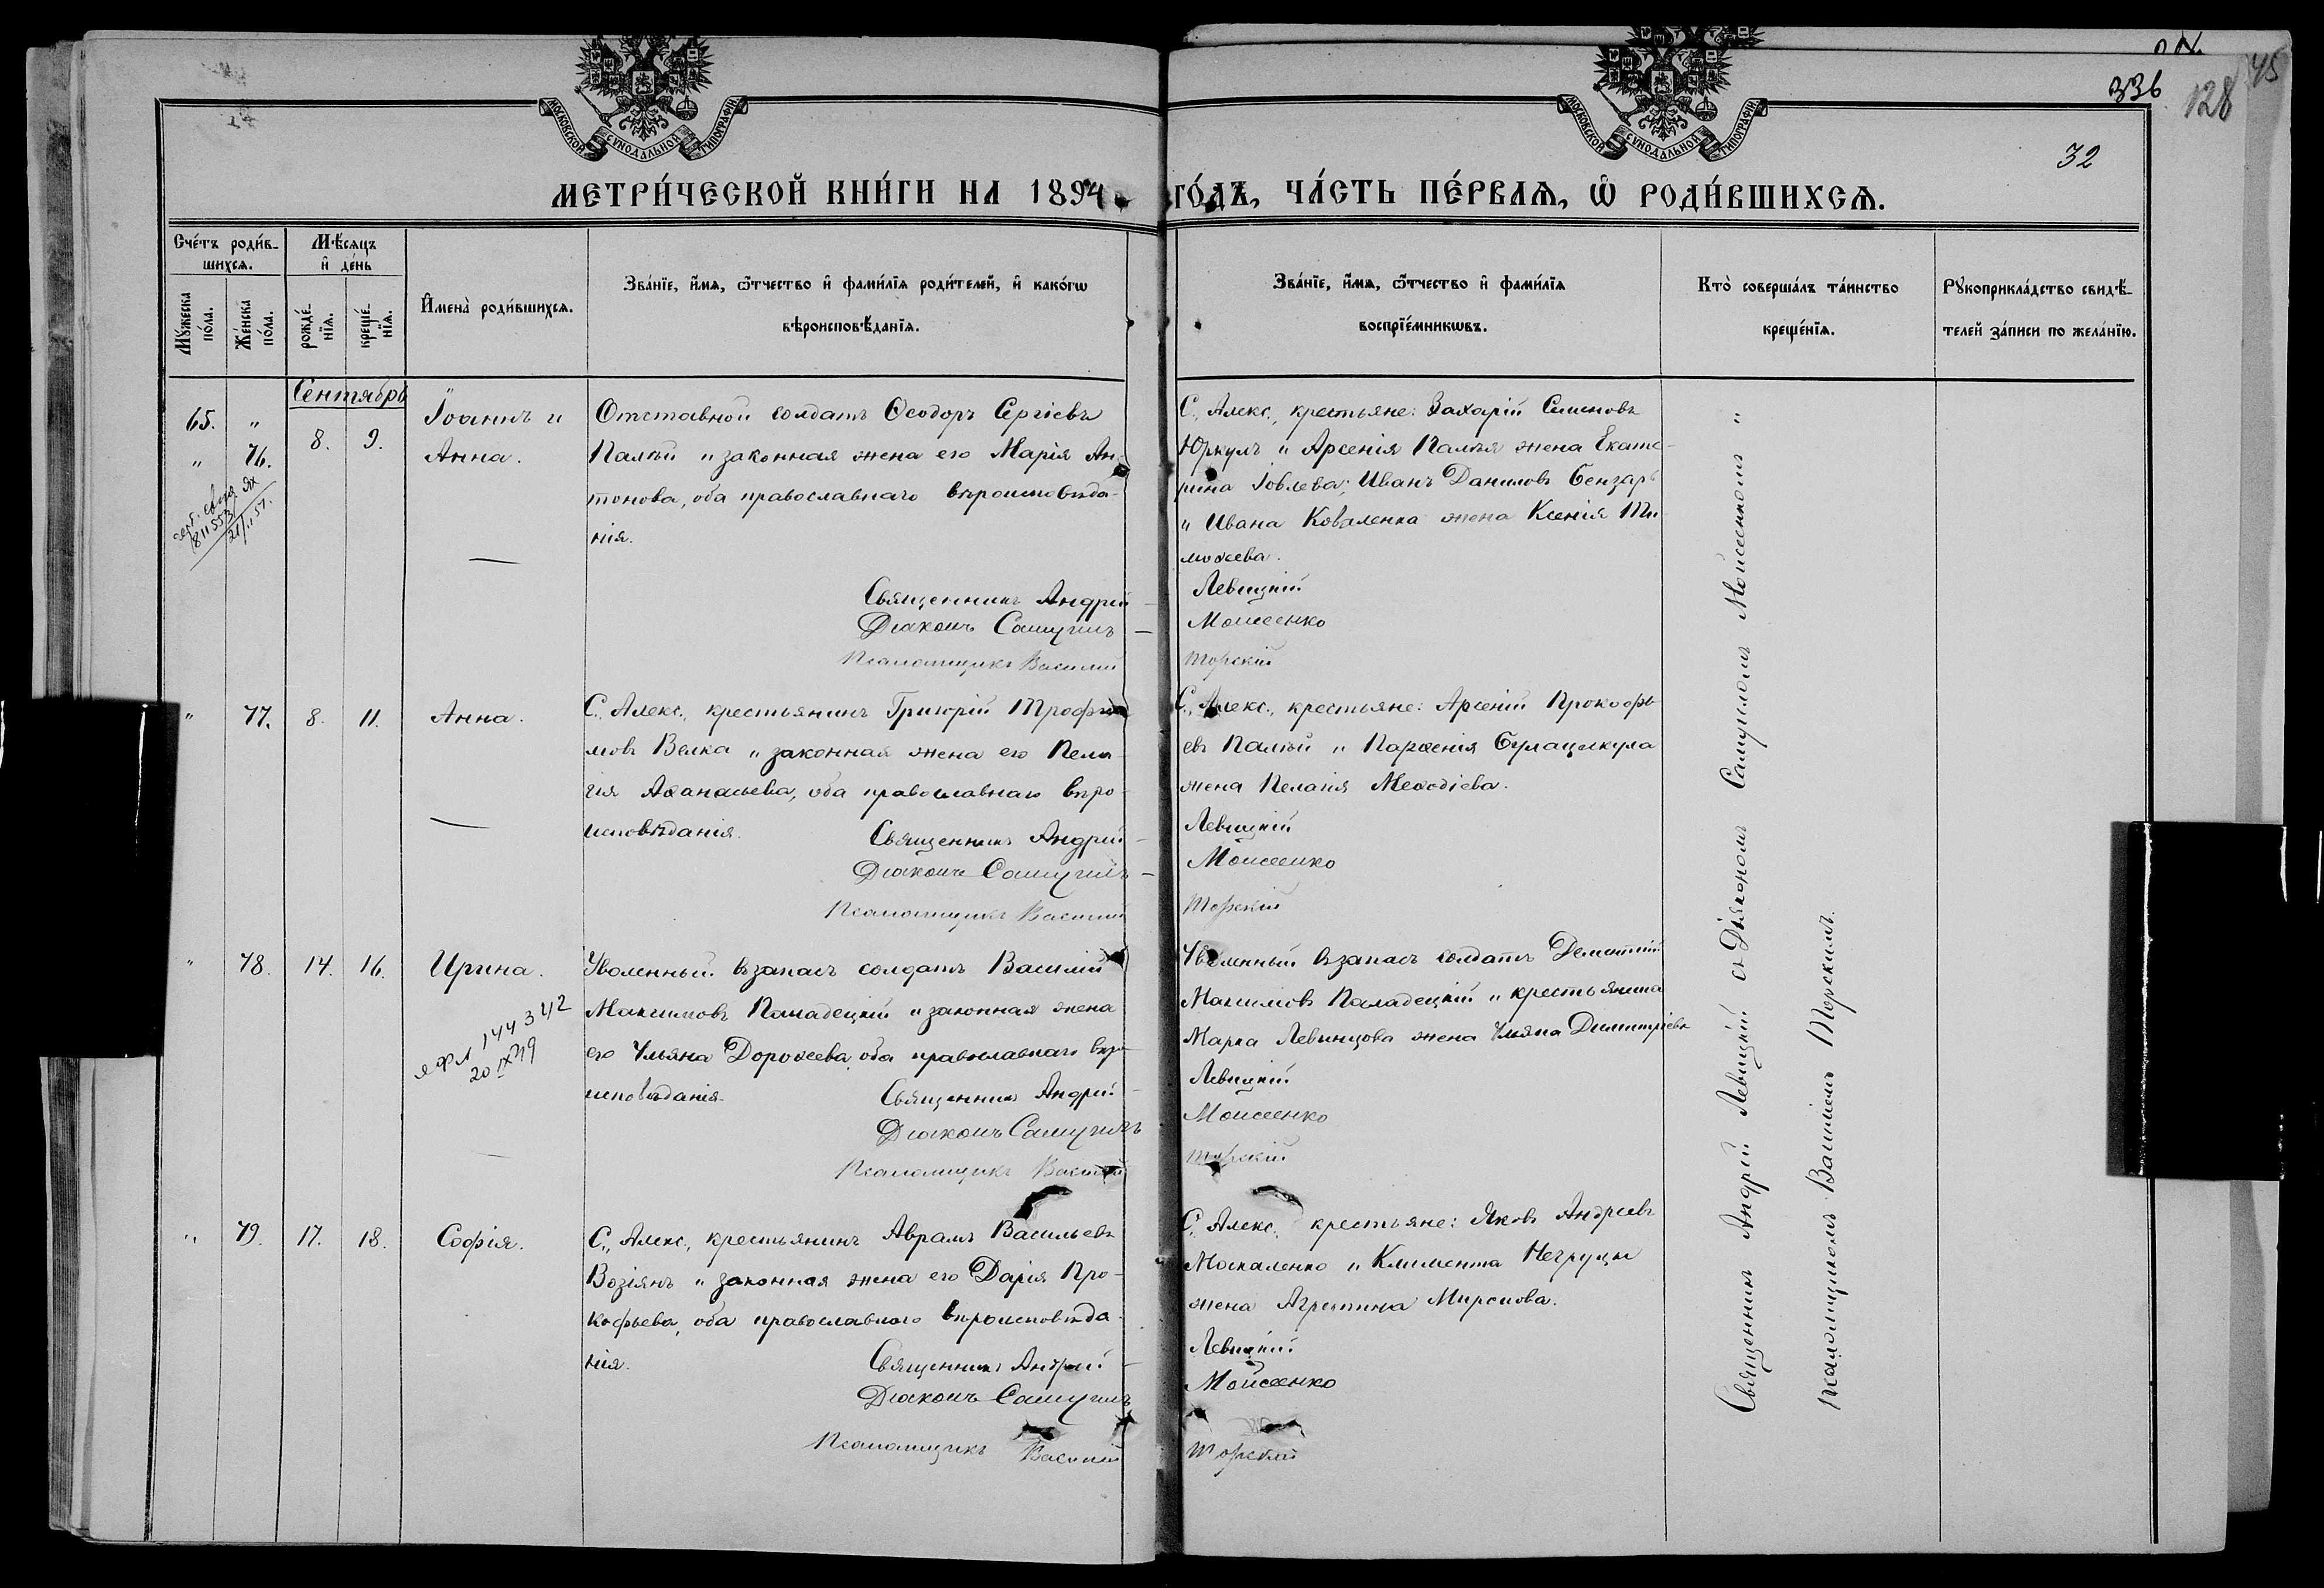 336
128
45
32
МОСКОВСКОЙ СУНОДАЛЬНОЙ ТИПОГРАФІИ
МОСКОВСКОЙ СУНОДАЛЬНОЙ ТИПОГРАФІИ
МЕТРИ́ЧЕСКОЙ КНИ́ГИ НА 1894 ГО́ДЪ, ЧА́СТЬ ПЕ́РВАѦ, Ѿ РОДИ́ВШИХСѦ.
Сче́тъ роди́в-
шихсѧ.
Мѣ́сѧцъ
и҆ де́нь
Мꙋ́жеска
по́ла.
Же́нска
по́ла.
рожде́-
нїѧ.
креще́-
нїѧ.
И҆мена̀ роди́вшихсѧ.
Зва́нїе, и҆́мѧ, ѻ҆́тчество и҆ фами́лїѧ роди́телей, и҆ како́гѡ
вѣроисповѣ́данїѧ.
Зва́нїе, и҆́мѧ, ѻ҆́тчество и҆ фами́лїѧ
воспрїе́мникѡвъ.
Кто̀ соверша́лъ та́инство
креще́нїѧ.
Рꙋкоприкла́дство свидѣ́-
телей за́писи по жела́нїю.
Сентябрь
65. "
" 76.
8. 9.
Іоаннъ и
Анна.
811553
21/II 51.
Отставной солдатъ Ѳеодоръ Сергіевъ
Палій и законная жена его Марія Ан-
тонова, оба православнаго вѣроисповѣда-
нія.
Священникъ Андрей —
Діаконъ Самуилъ —
Псаломщикъ Василий
С. Алекс., крестьяне: Захарій Семеновъ
Юркулъ и Арсенія Палія жена Екате-
рина Іовлева; Иванъ Даниловъ Бензарь
и Ивана Коваленка жена Ксенія Ти-
моѳеева.
Левицкій
Моисеенко
Торскій
" 77. 8. 11. Анна.
С. Алекс., крестьянинъ Григорій Трофи-
мовъ Велка и законная жена его Пела-
гія Аѳанасьева, оба православнаго вѣро-
исповѣданія.
Священникъ Андрей —
Діаконъ Самуилъ —
Псаломщикъ Василий
С. Алекс., крестьяне: Арсеній Прокофь-
евъ Палій и Парѳенія Булацикула
жена Пелагія Меѳодіева.
Левицкій
Моисеенко
Торскій
" 78. 14. 16. Ирина.
144342
20 IX 49
Уволенный въ запасъ солдатъ Василій
Максимовъ Паладецкій и законная жена
его Ульяна Дороѳеева, оба православнаго вѣро-
исповѣданія.
Священникъ Андрей —
Діаконъ Самуилъ
Псаломщикъ Василий
Уволенный въ запасъ солдатъ Дементій
Максимовъ Паладецкій и крестьянина
Марка Левинцова жена Ульяна Димитріева
Левицкій
Моисеенко
Торскій
" 79. 17. 18. Софія.
С. Алекс., крестьянинъ Аврамъ Васильевъ
Возіянъ и законная жена его Дарія Про-
кофьева, оба православнаго вѣроисповѣда-
нія.
Священникъ Андрей —
Діаконъ Самуилъ
Псаломщикъ Василий
С. Алекс. крестьяне: Яковъ Андреевъ
Москаленко и Климента Негруцы
жена Агрепина Миронова.
Левицкій
Моисеенко
Торскій
Священникъ Андрей Левицкій съ Діакономъ Самуиломъ Моисеенкомъ и
псаломщикомъ Василіемъ Торскимъ.